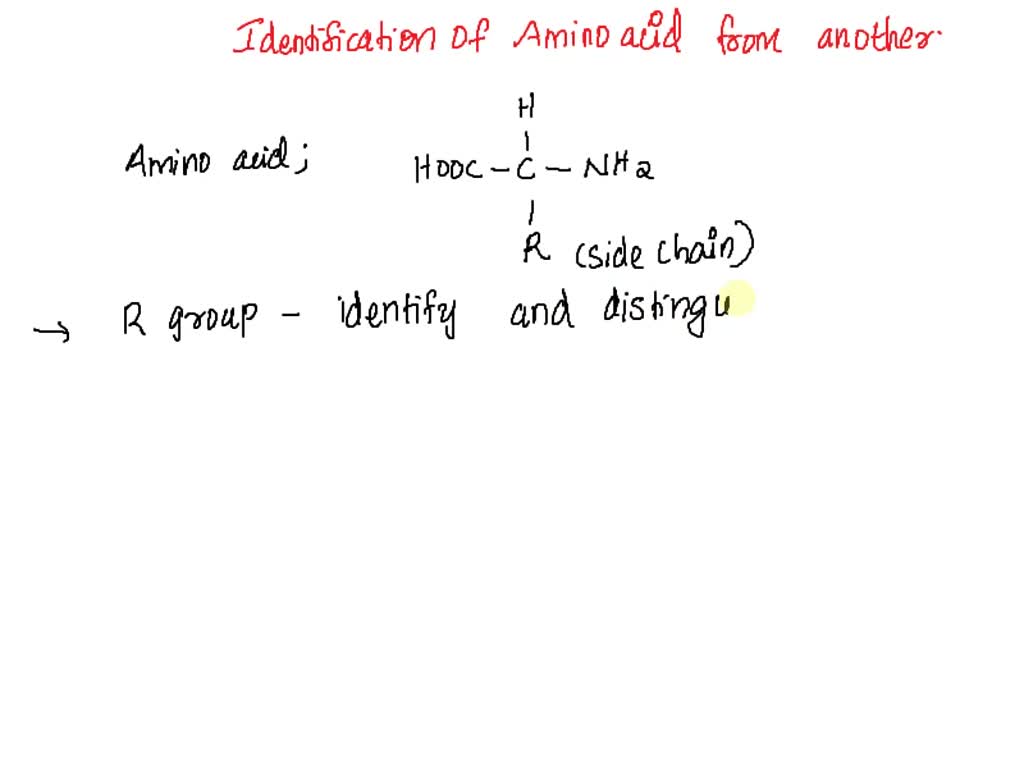 Identification of Amino acid from another.
H
Amino acid; HOOC - C - NH2
R (side chain)
→ R group - identify and distingu